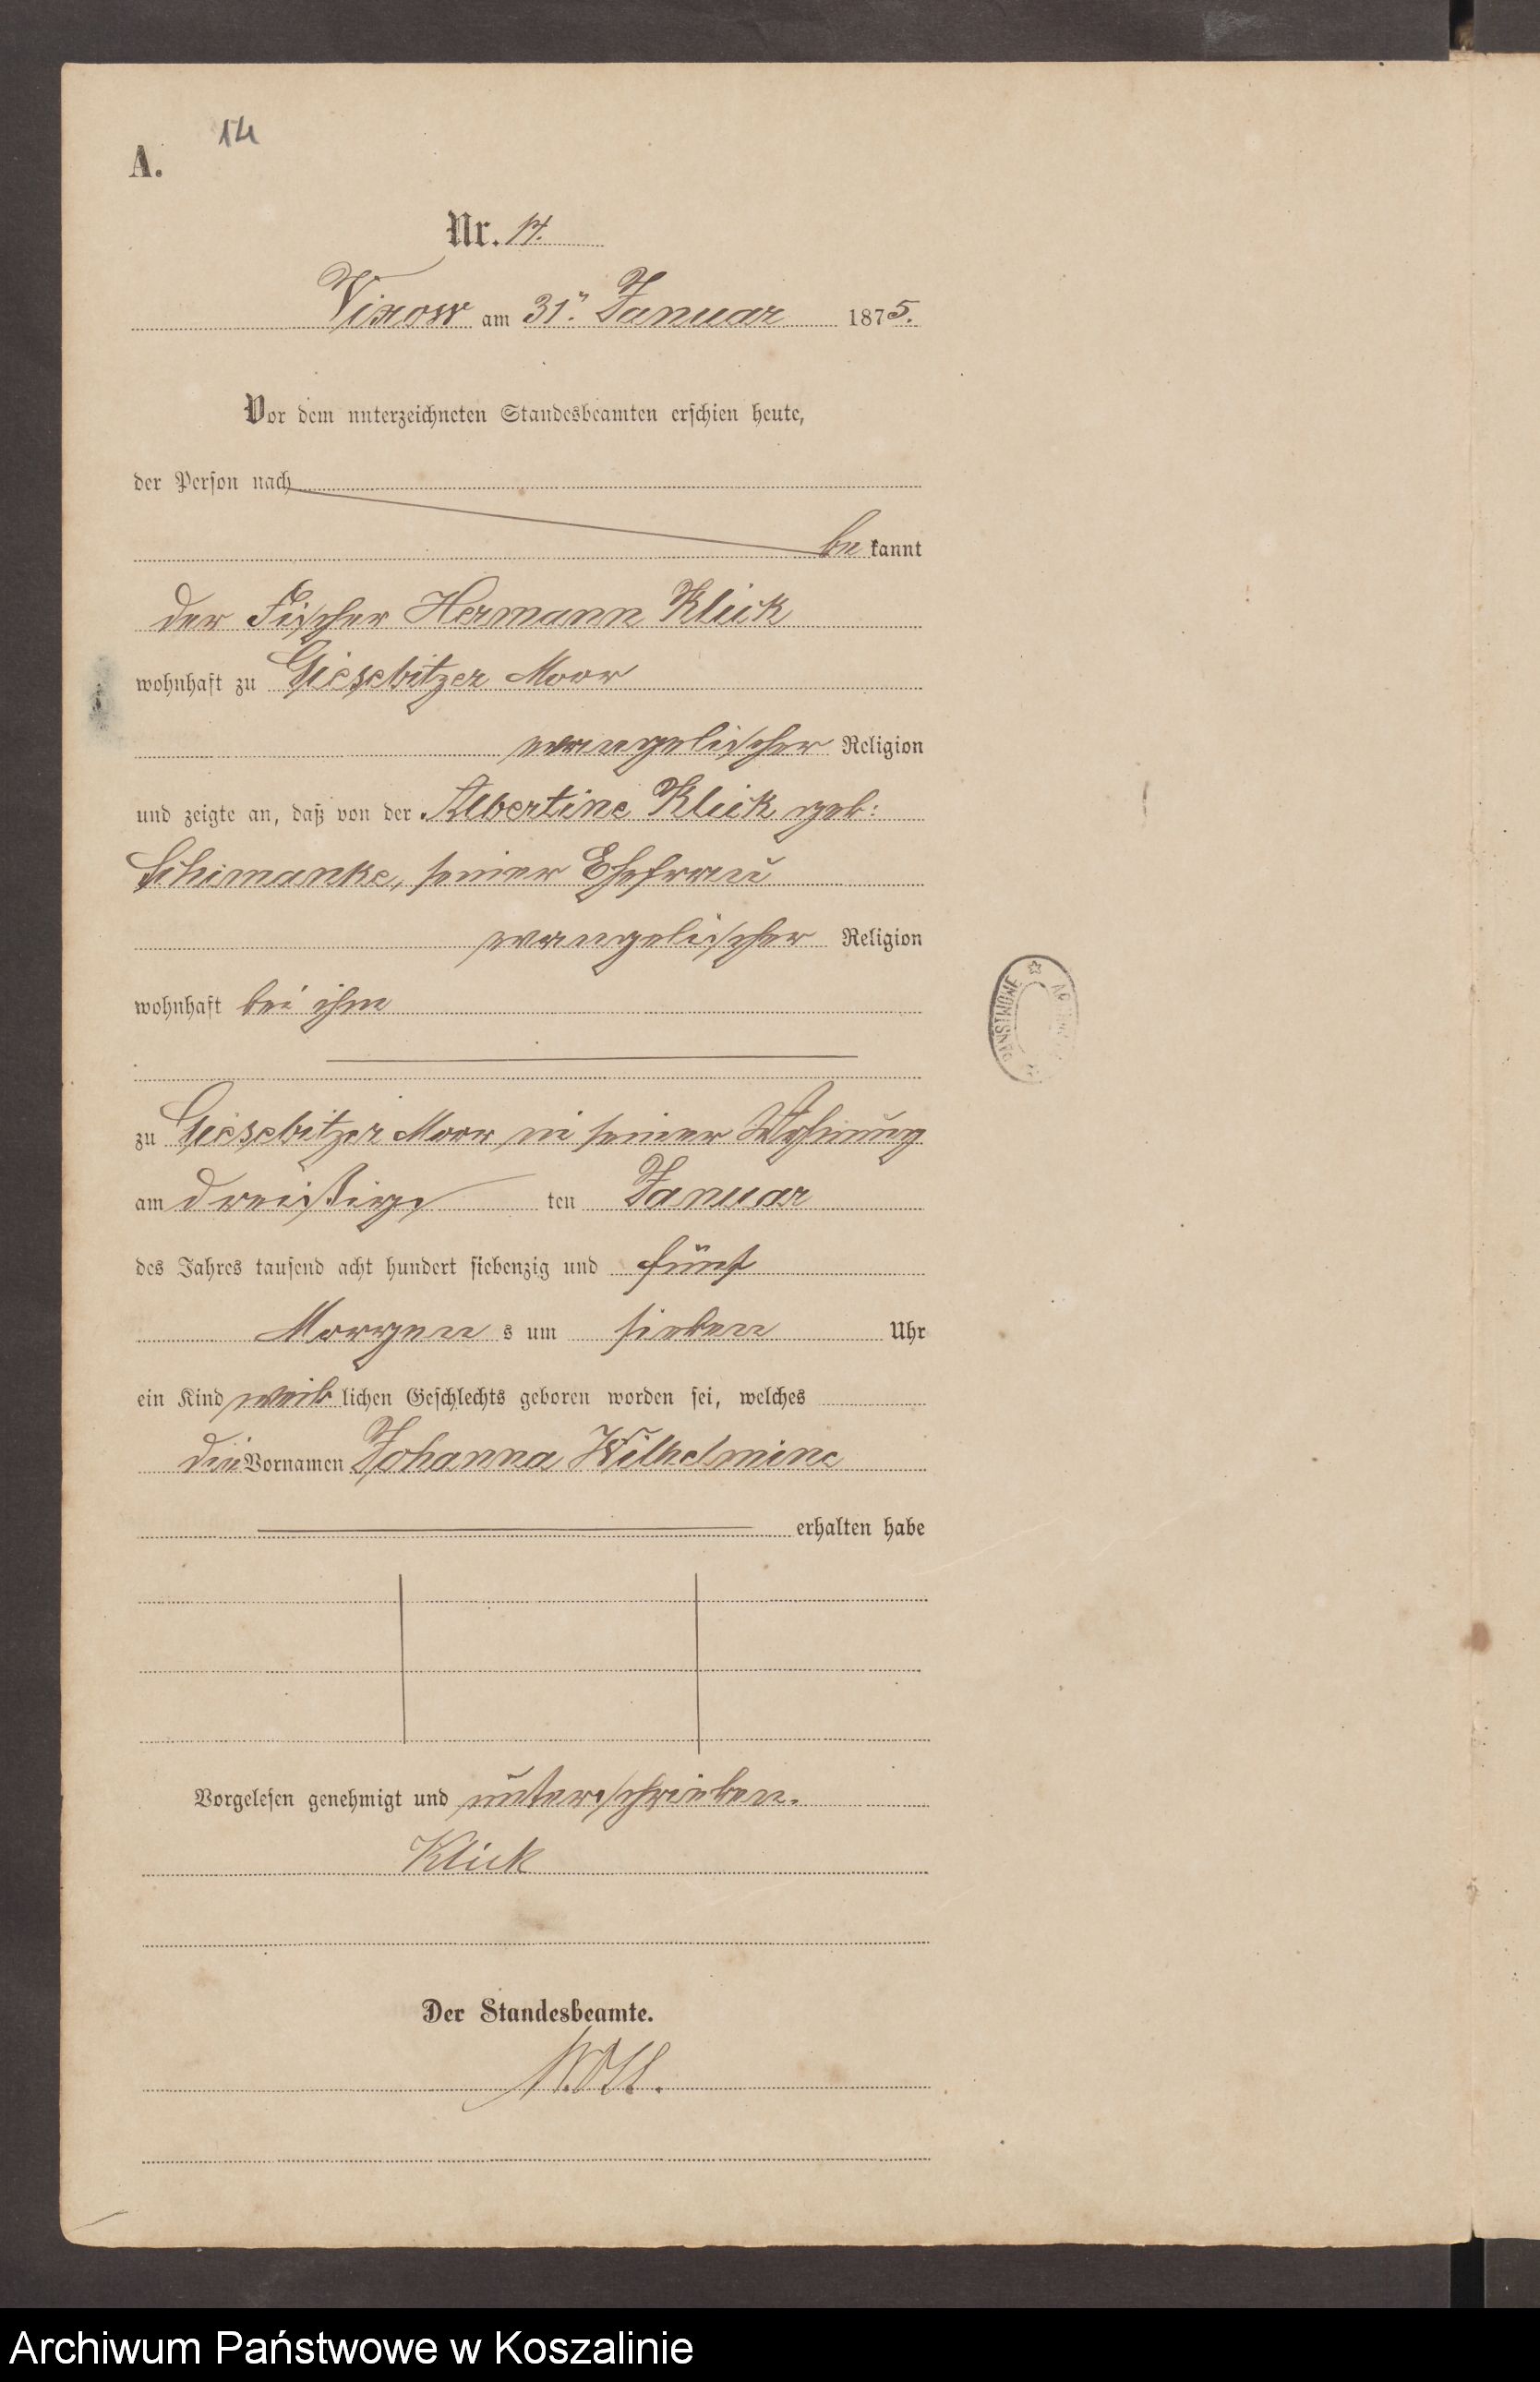 A.
14
Nr. 14.
Vixow am 31n. Januar 1875.
Vor dem unterzeichneten Standesbeamten erschien heute,
der Person nach
be kannt
der Fischer Hermann Klick
wohnhaft zu Giesebitzer Moor
evangelischer Religion
und zeigte an, daß von der Albertine Klick geb:
Schimanke, seiner Ehefrau
evangelischer Religion
wohnhaft bei ihm
zu Giesebitzer Moor in seiner Wohnung
am dreißigs ten Januar
des Jahres tausend acht hundert siebenzig und fünf
Morgen s um sieben Uhr
ein Kind weib lichen Geschlechts geboren worden sei, welches
die Vornamen Johanna Wilhelmine
erhalten habe
Vorgelesen genehmigt und unterschrieben.
Klick
Der Standesbeamte.
PAŃSTWOWE
Archiwum Państwowe w Koszalinie